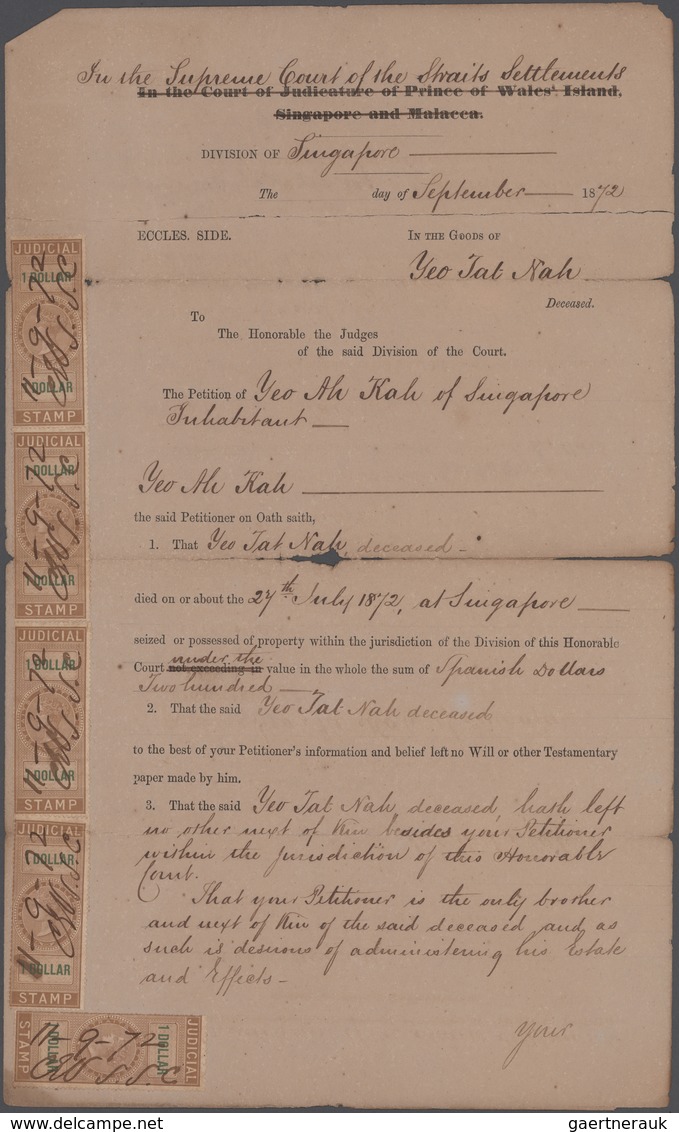 In the Supreme Court of the Straits Settlements
In the Court of Judicature of Prince of Wales' Island,
Singapore and Malacca.
DIVISION OF Singapore
The day of September 1872
ECCLES. SIDE. IN THE GOODS OF
Yeo Tat Nah
Deceased.
To
The Honorable the Judges
of the said Division of the Court.
The Petition of Yeo Ah Kah of Singapore
Inhabitant
Yeo Ah Kah
the said Petitioner on Oath saith,
1. That Yeo Tat Nah deceased
died on or about the 27th July 1872, at Singapore
seized or possessed of property within the jurisdiction of the Division of this Honorable
under the
Court not exceeding in value in the whole the sum of Spanish Dollars
Two hundred
2. That the said Yeo Tat Nah deceased
to the best of your Petitioner's information and belief left no Will or other Testamentary
paper made by him.
3. That the said Yeo Tat Nah deceased, hath left
no other next of Kin besides your Petitioner
within the jurisdiction of this Honorable
Court.
That your Petitioner is the only brother
and next of Kin of the said deceased and as
such is desirous of administering his Estate
and Effects -
Your
JUDICIAL
1 DOLLAR
11-9-72
1 DOLLAR
STAMP
JUDICIAL
1 DOLLAR
11-9-72
1 DOLLAR
STAMP
JUDICIAL
1 DOLLAR
11-9-72
1 DOLLAR
STAMP
JUDICIAL
1 DOLLAR
11-9-72
1 DOLLAR
STAMP
JUDICIAL
1 DOLLAR
11-9-72
1 DOLLAR
STAMP
www.delcampe.net
gaertnerauk